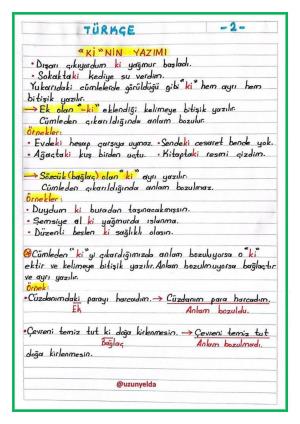 TÜRKÇE -2-
"Kİ" NİN YAZIMI
• Dışarı çıkıyordum ki yağmur başladı.
• Sokaktaki kediye su verdim.
Yukarıdaki cümlelerde görüldüğü gibi "ki" hem ayrı hem
bitişik yazılır.
→ Ek olan "-ki" eklendiği kelimeye bitişik yazılır.
Cümleden çıkarıldığında anlam bozulur.
Örnekler:
• Evdeki hesap çarşıya uymaz. • Sendeki cesaret bende yok.
• Ağaçtaki kuş birden uçtu. • Kitaptaki resmi çizdim.
→ Sözcük (bağlaç) olan "ki" ayrı yazılır.
Cümleden çıkarıldığında anlam bozulmaz.
Örnekler:
• Duydum ki buradan taşınacakmışsın.
• Şemsiye al ki yağmurda ıslanma.
• Düzenli beslen ki sağlıklı olasın.
Cümleden "ki" yi çıkardığımızda anlam bozuluyorsa o "ki"
ektir ve kelimeye bitişik yazılır. Anlam bozulmuyorsa bağlaçtır
ve ayrı yazılır.
Örnek:
• Cüzdanımdaki parayı harcadım. → Cüzdanım para harcadım.
Ek Anlam bozuldu.
• Çevreni temiz tut ki doğa kirlenmesin. → Çevreni temiz tut
Bağlaç Anlam bozulmadı.
doğa kirlenmesin.
@uzunyelda